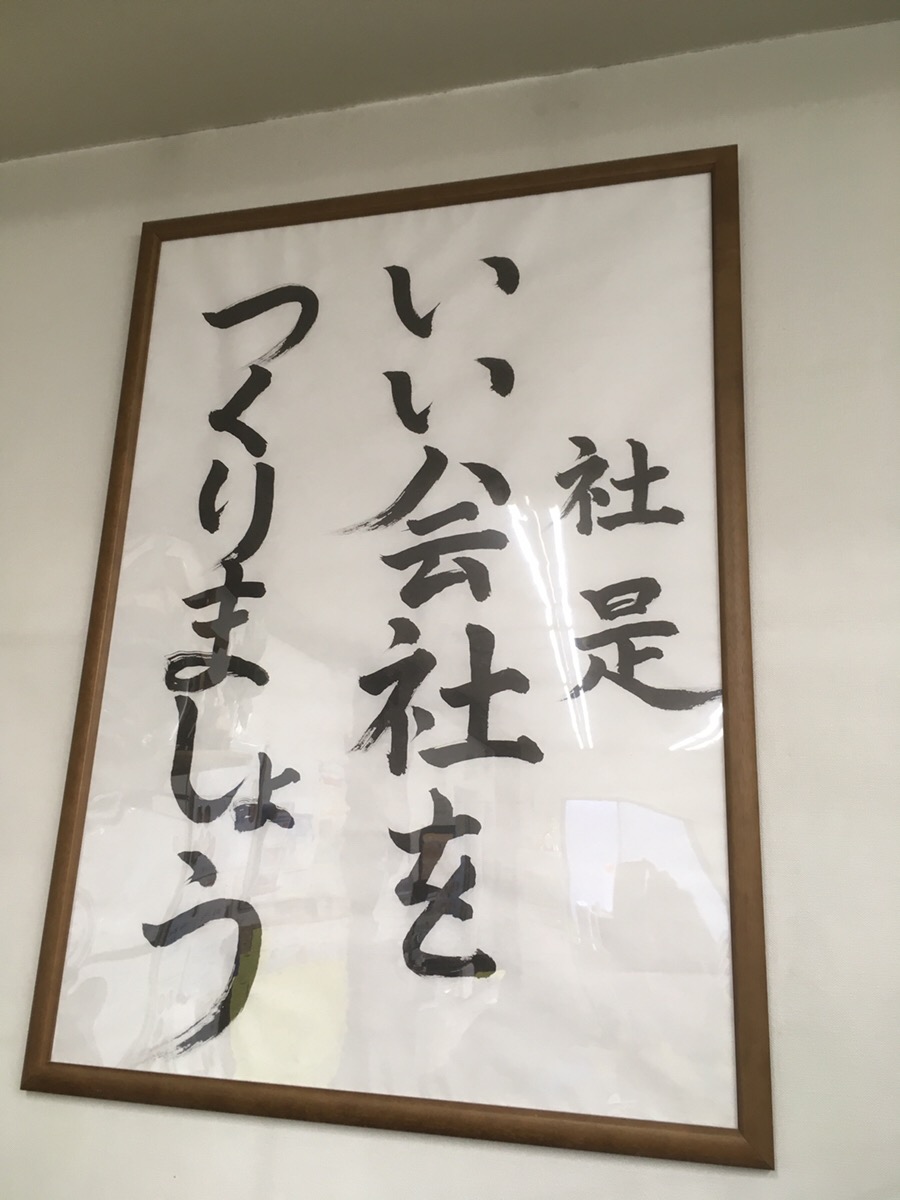 社是
いい会社を
つくりましょう